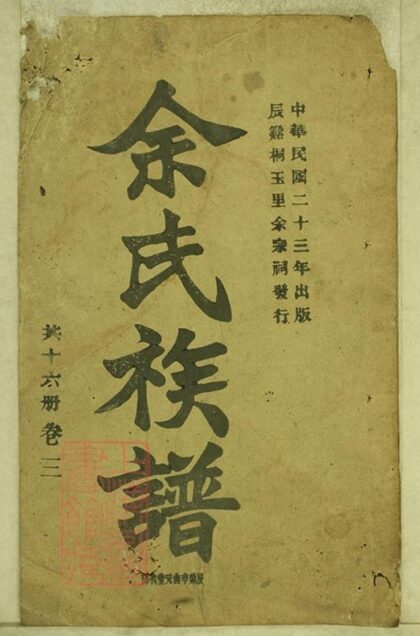 中華民國二十三年出版
辰谿桐玉里余家祠發行
余氏族譜
共十六册卷三